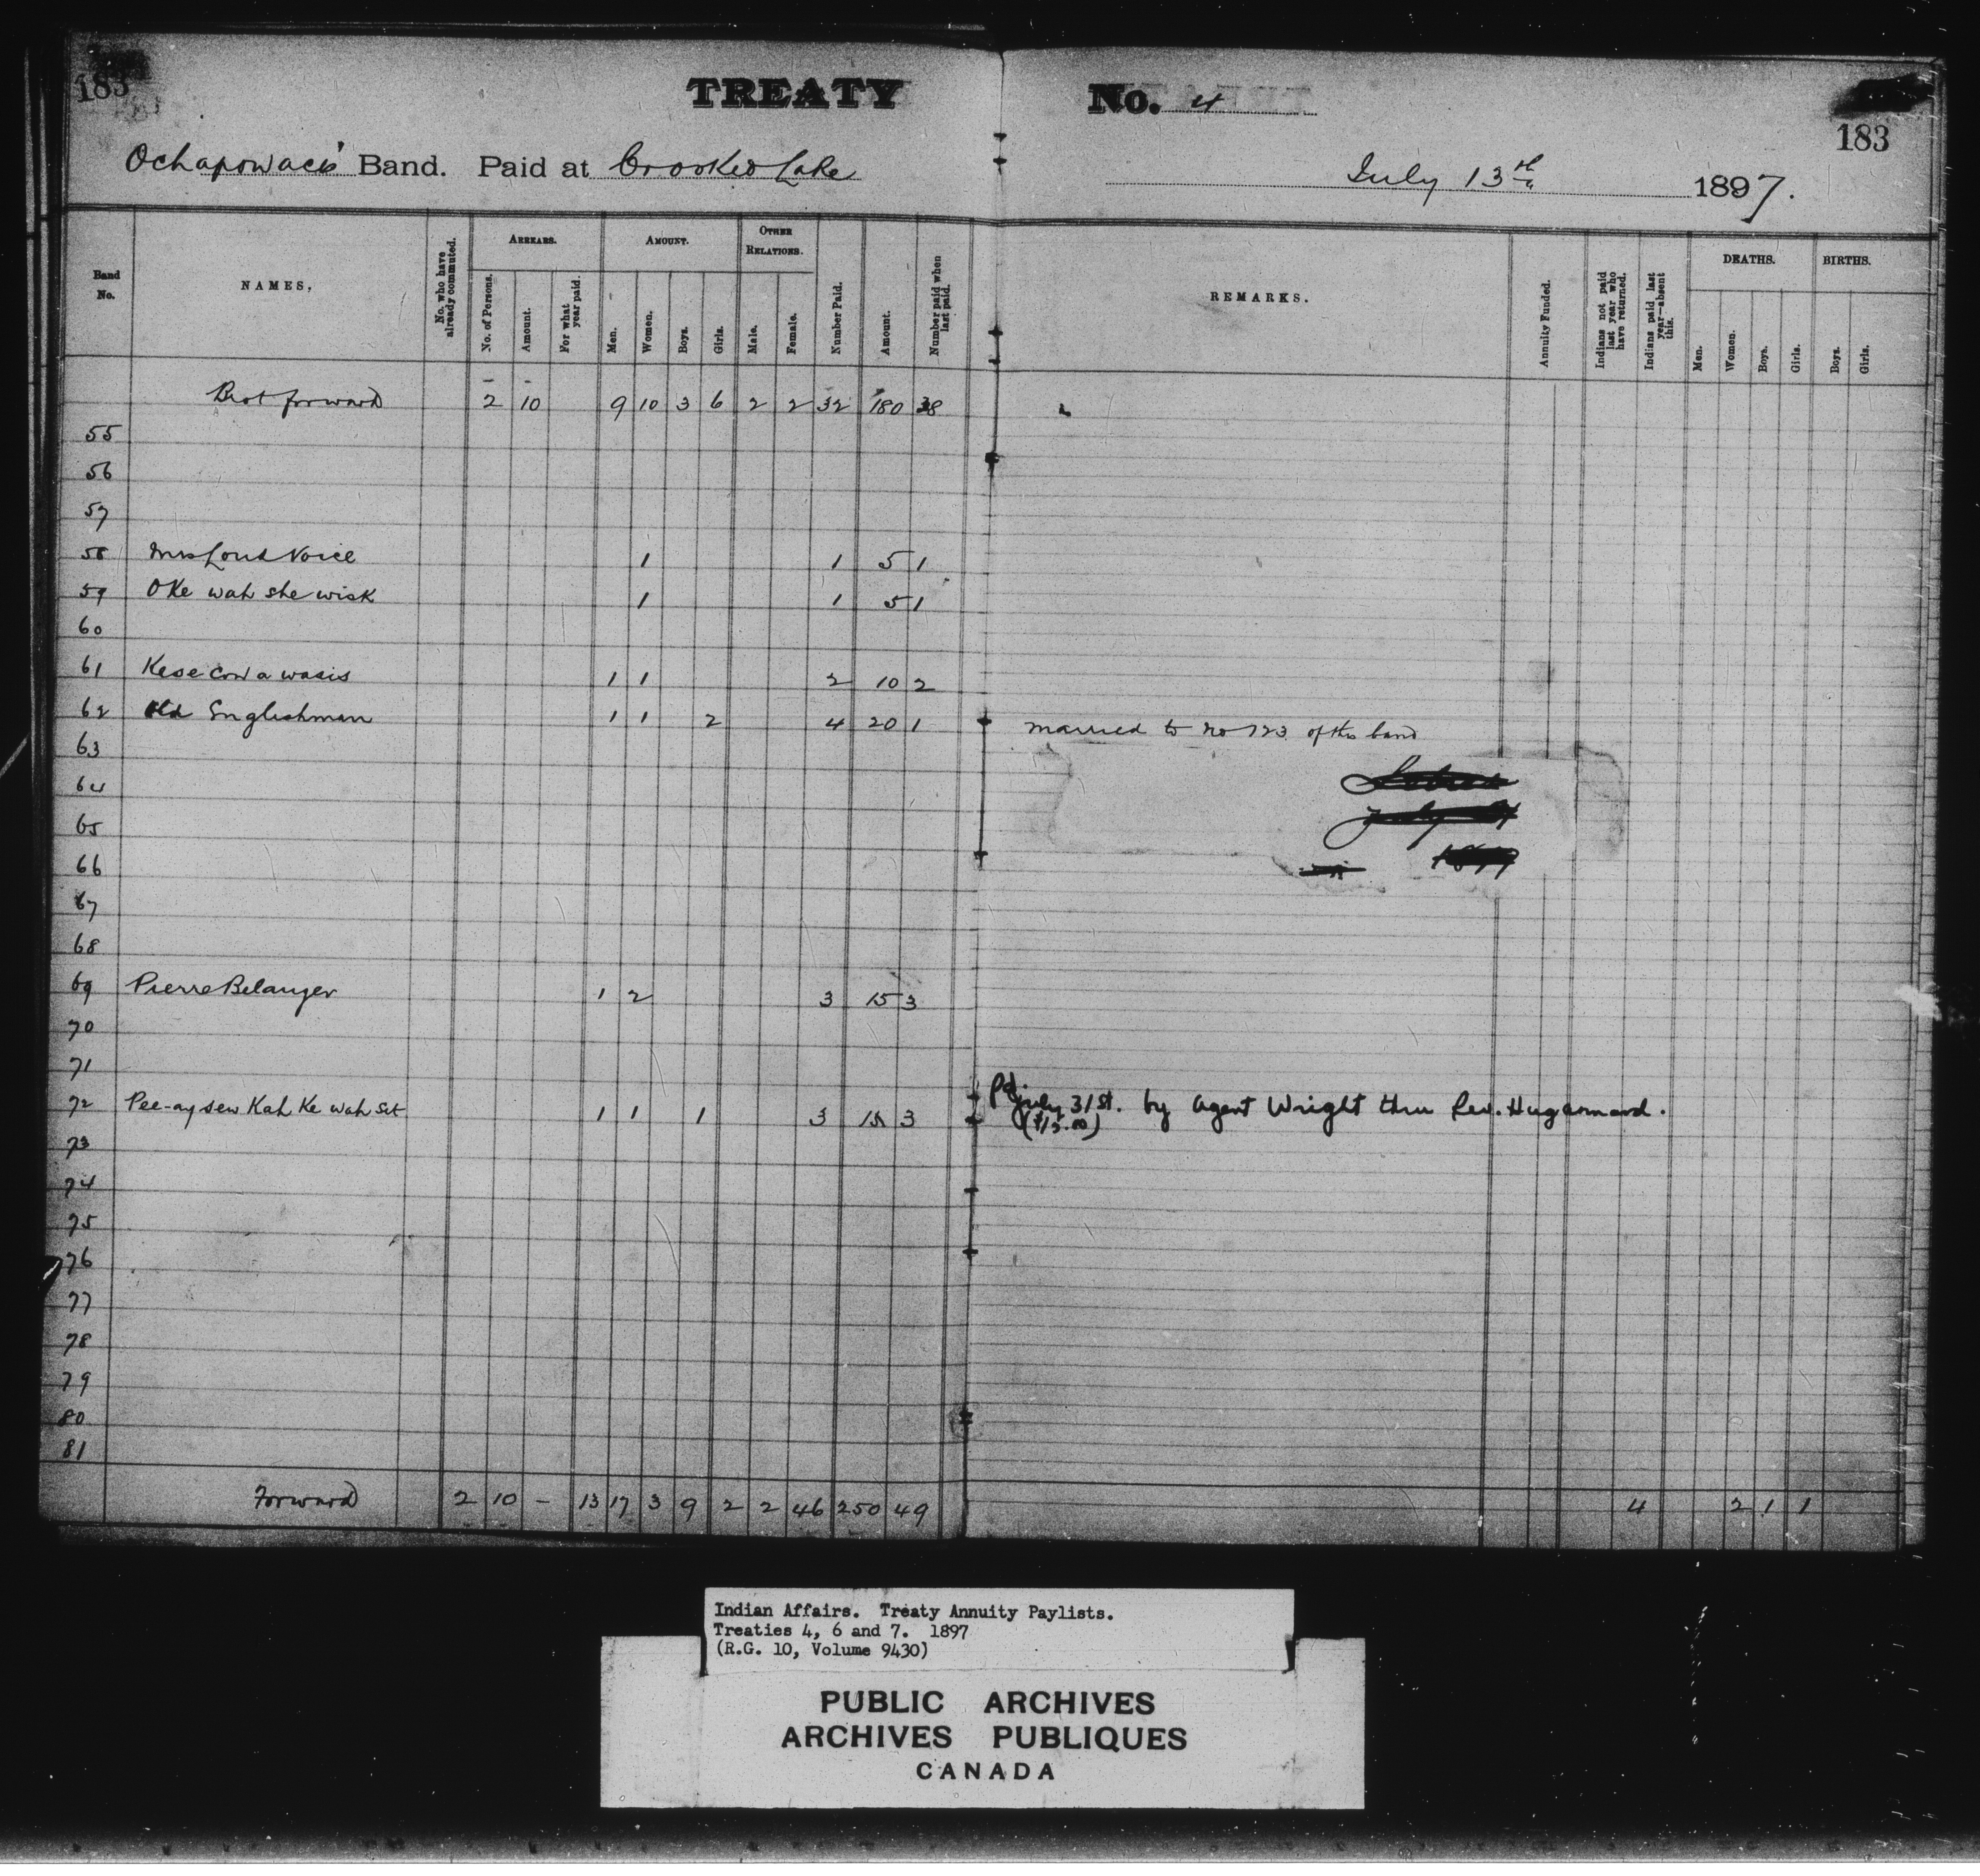 183
TREATY No. 4
183
Ochapowace's Band. Paid at Crooked Lake July 13th 1897.
Band No.
NAMES,
No. who have already commuted.
ARREARS.
No. of Persons.
Amount.
For what year paid.
AMOUNT.
Men.
Women.
Boys.
Girls.
OTHER RELATIONS.
Male.
Female.
Number Paid.
Amount.
Number paid when last paid.
REMARKS.
Annuity Funded.
Indians not paid last year who have returned.
Indians paid last year—absent this.
DEATHS.
Men.
Women.
Boys.
Girls.
BIRTHS.
Boys.
Girls.
Brot forward 2 10 9 10 3 6 2 2 32 180 38
55
56
57
58 Mrs Loud Voice 1 1 5 1
59 O Ke wah she wisk 1 1 5 1
60
61 Kese cow a wasis 1 1 2 10 2
62 Old Englishman 1 1 2 4 20 1 married to no 123 of this band
63
64
65
66
67
68
69 Pierre Belanger 1 2 3 15 3
70
71
72 Pee-ay sew Kah Ke wah Set 1 1 1 3 15 3 Pd. July 31st. by Agent Wright thru Rev. Hugonnard.
($15.00)
73
74
75
76
77
78
79
80
81
Forward 2 10 – 13 17 3 9 2 2 46 250 49 4 2 1 1
Indian Affairs. Treaty Annuity Paylists.
Treaties 4, 6 and 7. 1897
(R.G. 10, Volume 9430)
PUBLIC ARCHIVES
ARCHIVES PUBLIQUES
CANADA